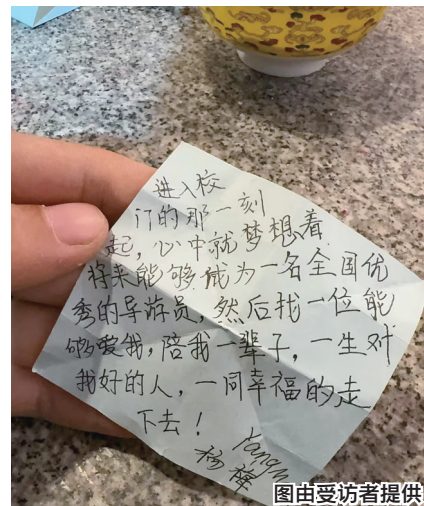 进入校
门的那一刻
起，心中就梦想着
将来能够成为一名全国优
秀的导游员，然后找一位能
够爱我，陪我一辈子，一生对
我好的人，一同幸福的走
下去！
图由受访者提供